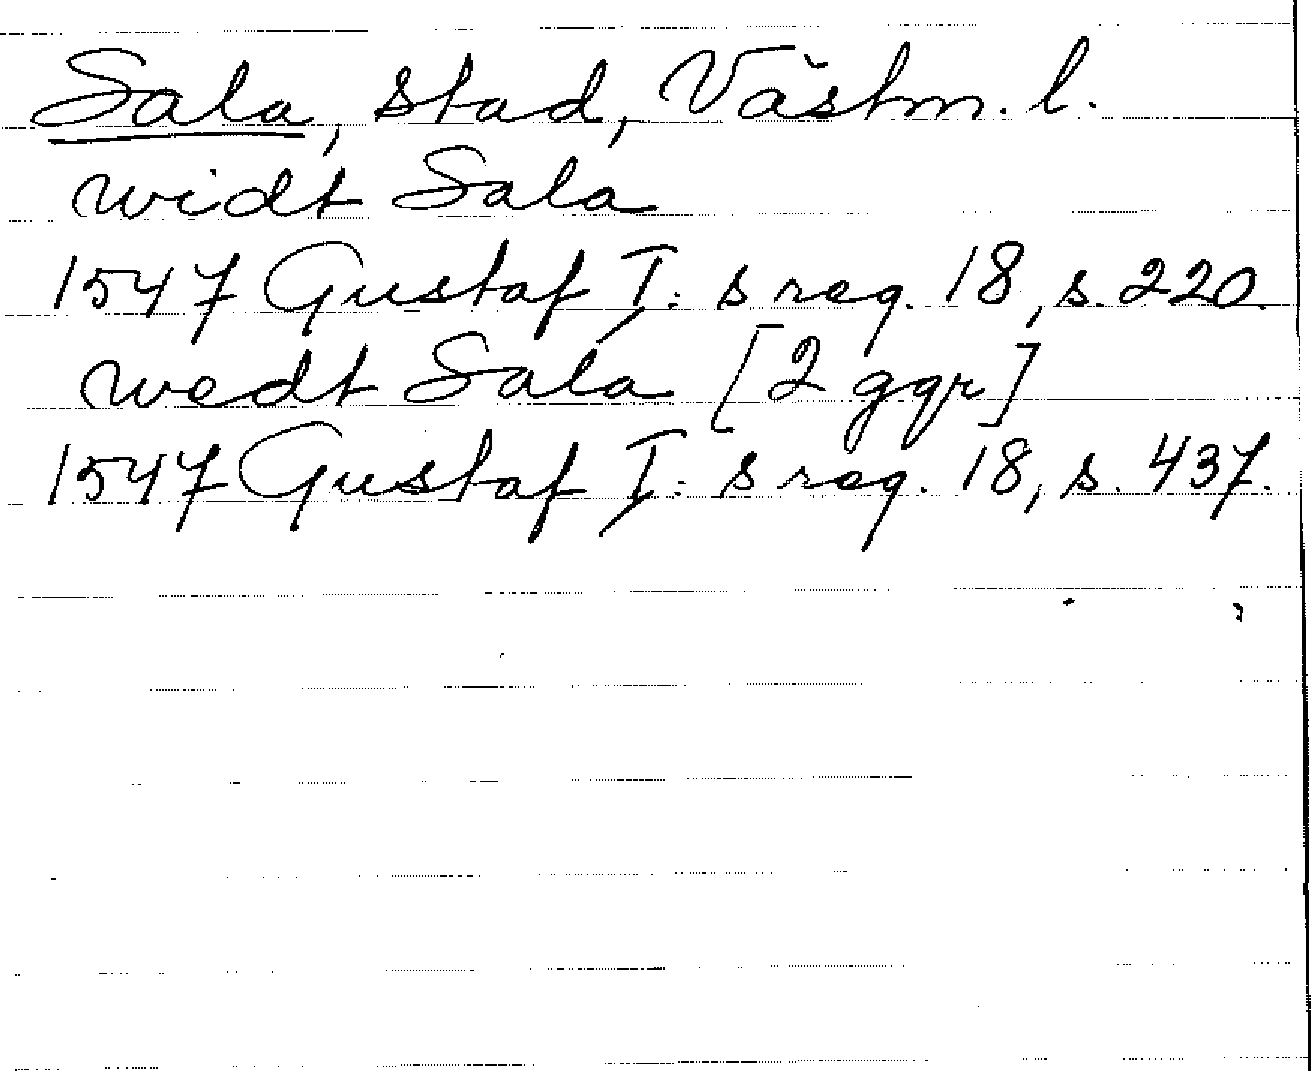 Sala, stad, Västm. l.
widt Sala
1547 Gustaf I:s reg. 18, s. 220
wedt Sala [2 ggr]
1547 Gustaf I:s reg. 18, s. 437.